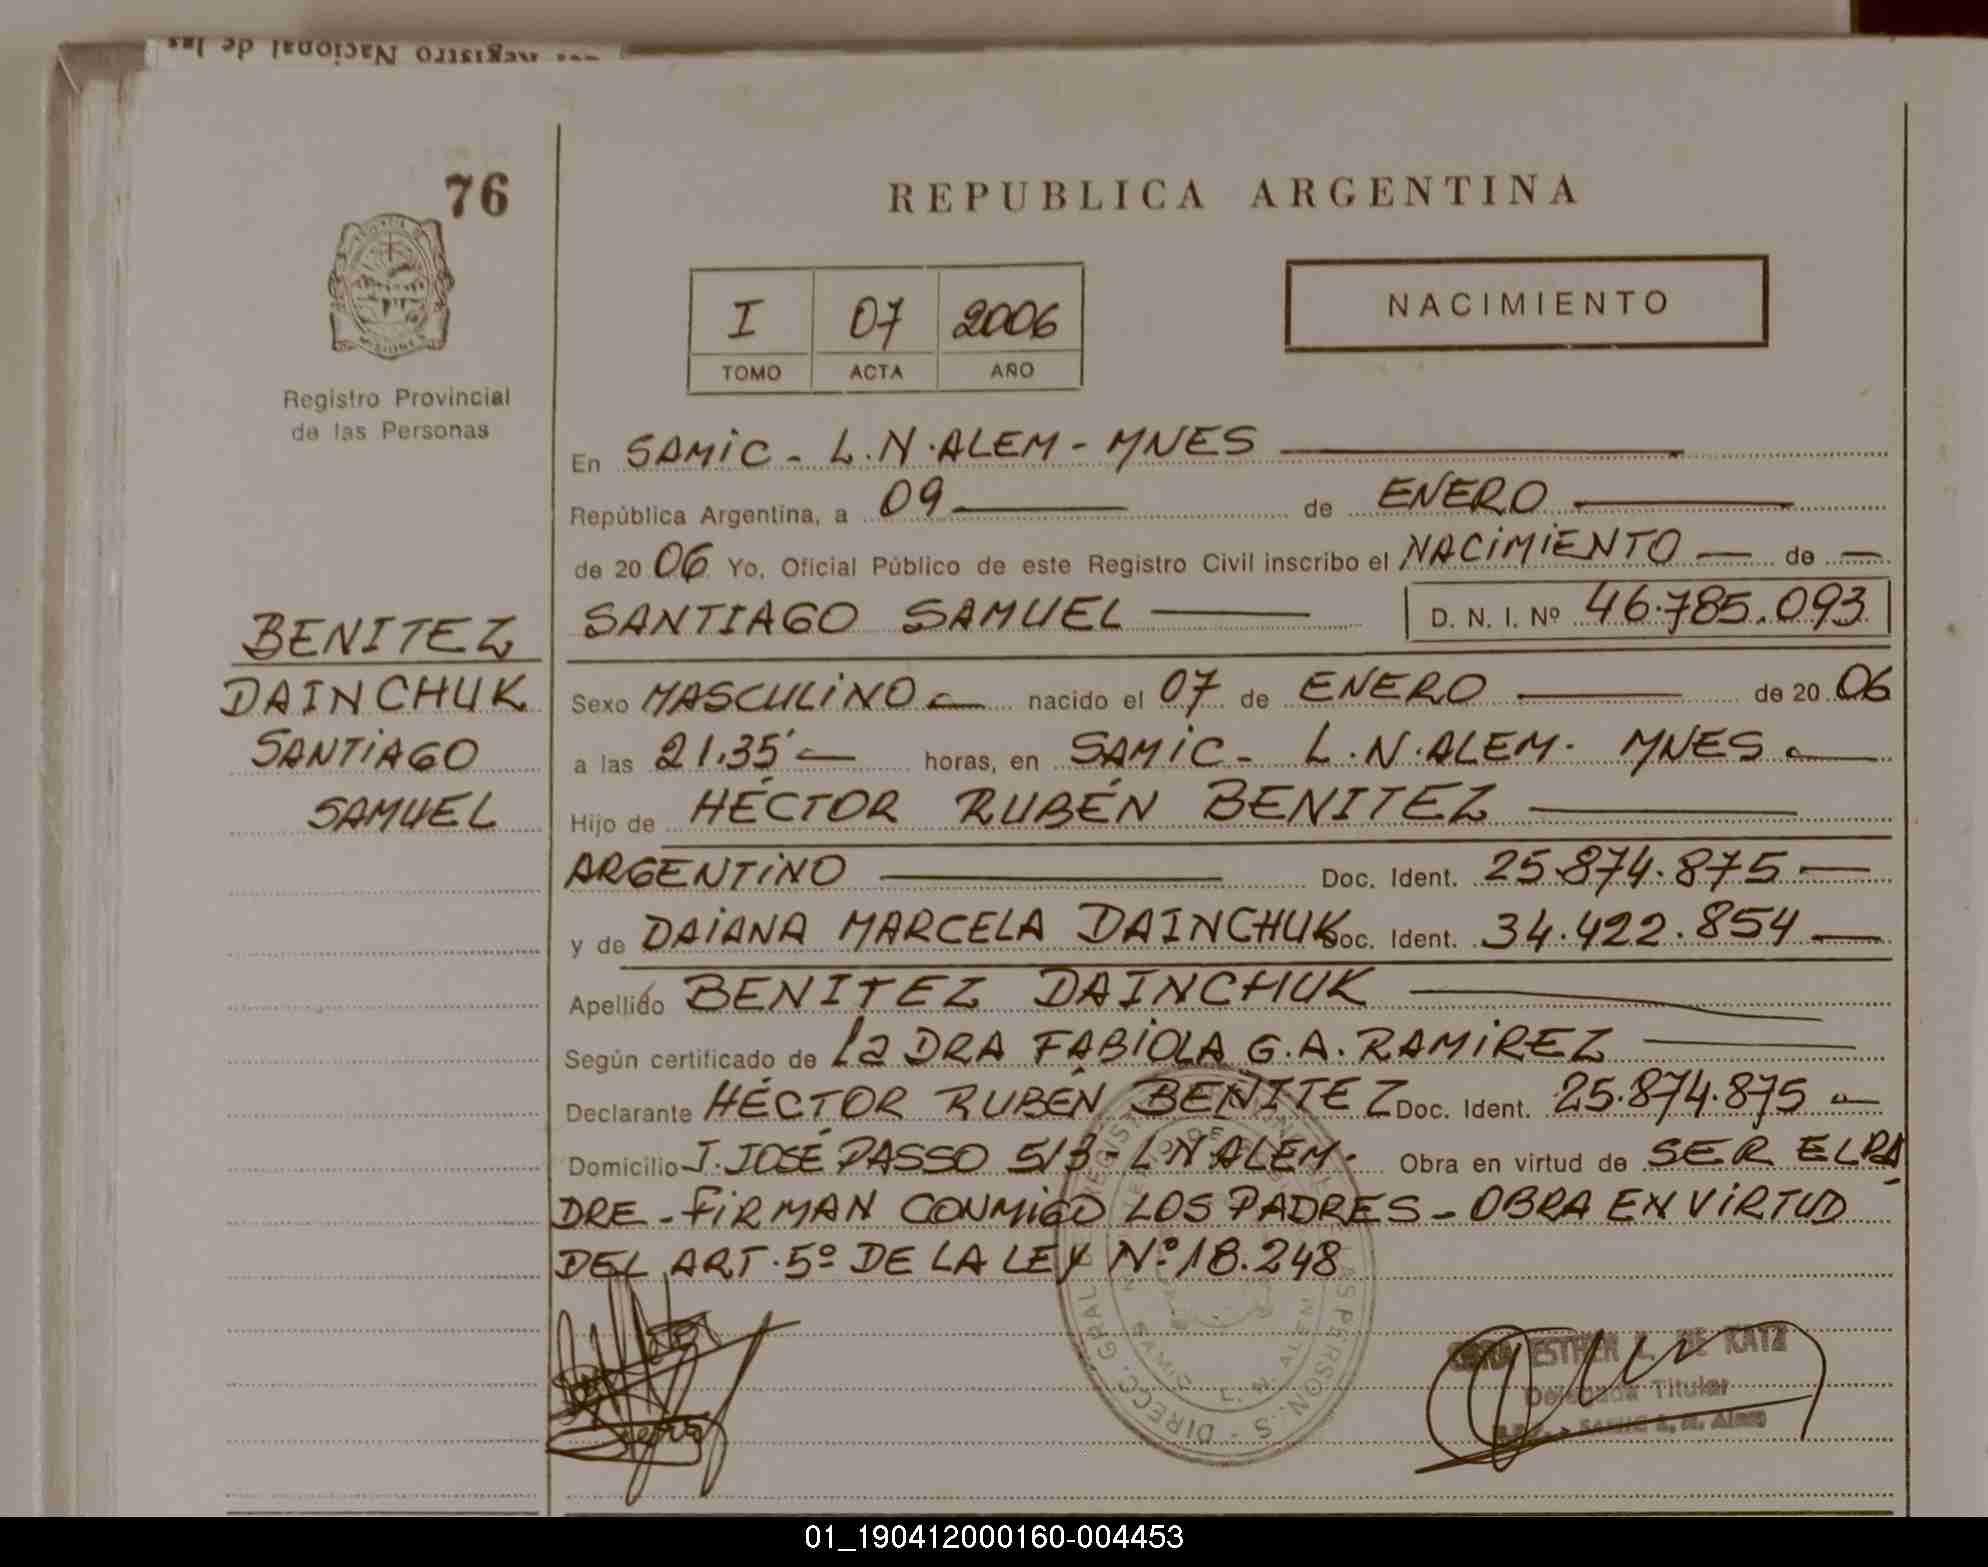 Registro Nacional de las
76
REPUBLICA ARGENTINA
NACIMIENTO
I 07 2006
TOMO ACTA AÑO
Registro Provincial
de las Personas
BENITEZ
DAINCHUK
SANTIAGO
SAMUEL
En SAMIC - L.N.ALEM - MNES
República Argentina, a 09 de ENERO
de 2006 Yo, Oficial Público de este Registro Civil inscribo el NACIMIENTO de
SANTIAGO SAMUEL D. N. I. Nº 46.785.093
Sexo MASCULINO nacido el 07 de ENERO de 2006
a las 21.35' horas, en SAMIC - L.N.ALEM. MNES
Hijo de HÉCTOR RUBÉN BENITEZ
ARGENTINO Doc. Ident. 25.874.875
y de DAIANA MARCELA DAINCHUK Doc. Ident. 34.422.854
Apellido BENITEZ DAINCHUK
Según certificado de La DRA FABIOLA G.A. RAMIREZ
Declarante HÉCTOR RUBÉN BENITEZ Doc. Ident. 25.874.875
Domicilio J. JOSÉ PASSO S/3 - L N ALEM. Obra en virtud de SER EL PA
DRE - FIRMAN CONMIGO LOS PADRES - OBRA EN VIRTUD
DEL ART. 5º DE LA LEY Nº 18.248
ESTHER L. DE KATZ
Delegada Titular
SAMIC L. N. Alem
SAMIC L. N. ALEM
01_190412000160-004453